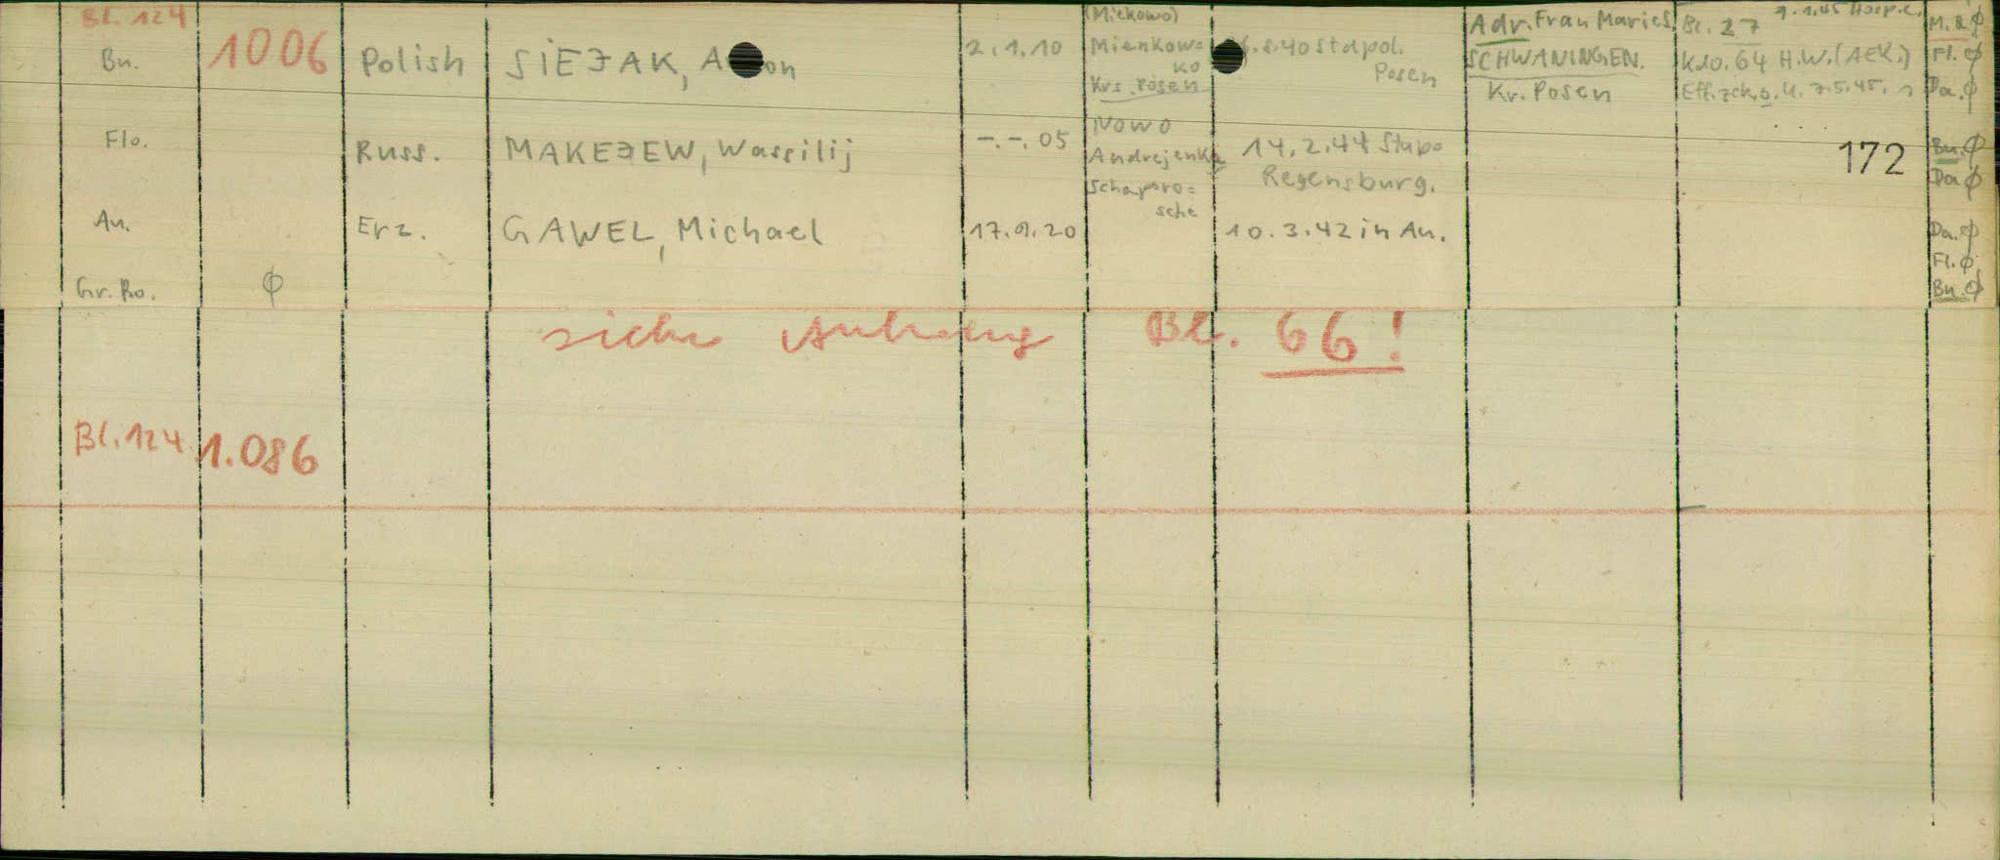 Bl. 124
Bu. 1006 Polish SIEJAK, A on 2.1.10 (Miekowo) Mienkow= ko Krs. Posen 6.8.40 Stapol. Posen Adr. Frau Maries. SCHWANINGEN. Kr. Posen Bl. 27 K10.64 H.W. (AEK.) 7.5.45. M.
Fl. ϕ
Da. ϕ
Flo. Russ. MAKEJEW, Wassilij -.-.05 Nowo Andrejenka Schaporo= sche 14.2.44 Stapo Regensburg. 172 Bu. ϕ
Da ϕ
Au. Erz. GAWEL, Michael 17.9.20 10.3.42 in Au. Da. ϕ
Fl. ϕ
Gr. Ro. ϕ Bu. ϕ
siehe Anhang Bl. 66!
Bl. 124 1.086